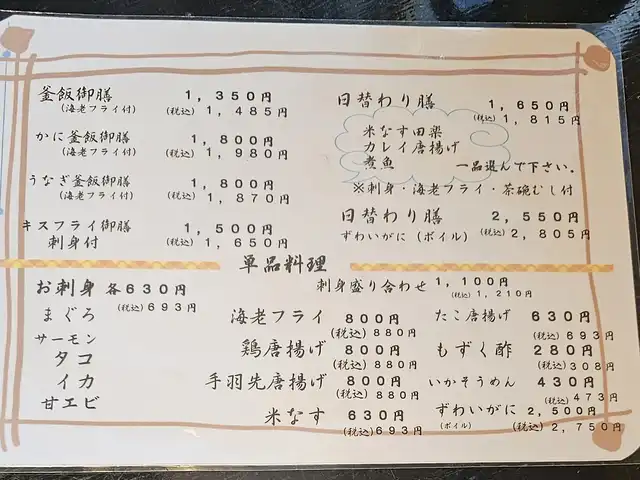 釜飯御膳 1,350円
(海老フライ付) (税込) 1,485円
かに釜飯御膳 1,800円
(海老フライ付) (税込) 1,980円
うなぎ釜飯御膳 1,800円
(海老フライ付) (税込) 1,870円
キスフライ御膳 1,500円
刺身付 (税込) 1,650円
日替わり膳 1,650円
(税込) 1,815円
米なす田楽
カレイ唐揚げ
煮魚 一品選んで下さい。
※刺身・海老フライ・茶碗むし付
日替わり膳 2,550円
ずわいがに (ボイル) (税込) 2,805円
単品料理
お刺身 各630円
(税込)693円
まぐろ
サーモン
タコ
イカ
甘エビ
刺身盛り合わせ 1,100円
(税込) 1,210円
海老フライ 800円
(税込)880円
鶏唐揚げ 800円
(税込)880円
手羽先唐揚げ 800円
(税込)880円
米なす 630円
(税込)693円
たこ唐揚げ 630円
(税込)693円
もずく酢 280円
(税込)308円
いかそうめん 430円
(税込)473円
ずわいがに 2,500円
(ボイル) (税込) 2,750円